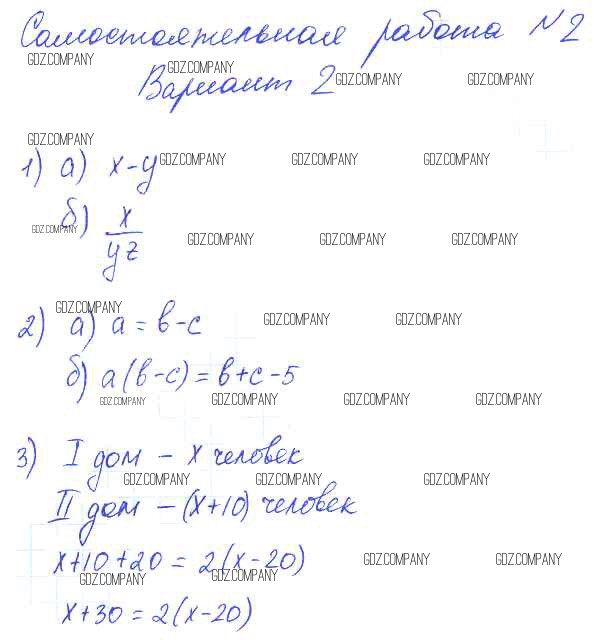 Самостоятельная работа №2
GDZ.COMPANY GDZ.COMPANY
Вариант 2 GDZ.COMPANY GDZ.COMPANY
GDZ.COMPANY
1) а) x-y GDZ.COMPANY GDZ.COMPANY GDZ.COMPANY
б) x/yz
GDZ.COMPANY GDZ.COMPANY GDZ.COMPANY GDZ.COMPANY
GDZ.COMPANY
2) а) a = b-c GDZ.COMPANY GDZ.COMPANY
б) a(b-c) = b+c-5
GDZ.COMPANY GDZ.COMPANY GDZ.COMPANY GDZ.COMPANY
3) I дом - x человек
GDZ.COMPANY GDZ.COMPANY GDZ.COMPANY
II дом - (x+10) человек
x+10+20 = 2(x-20) GDZ.COMPANY GDZ.COMPANY
GDZ.COMPANY GDZ.COMPANY
x+30 = 2(x-20)